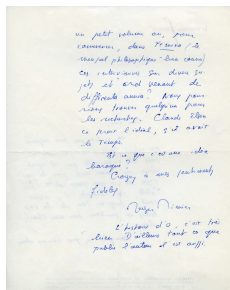 un petit volume où, pour
commencer, dans
philosophique bien connu,
ces interviews sur divers su-
jets et venant de
différents amis? Nous pour-
rions trouver quelqu'un pour
les rechercher. Claude Elsen
ce serait l'idéal, s'il avait
le temps.
Est-ce que c'est une idée
baroque?
Croyez à mes sentiments
fidèles.
Roger Nimier
L'histoire d'O, c'est très
bien. D'ailleurs tout ce que
publie l'auteur il est aussi.